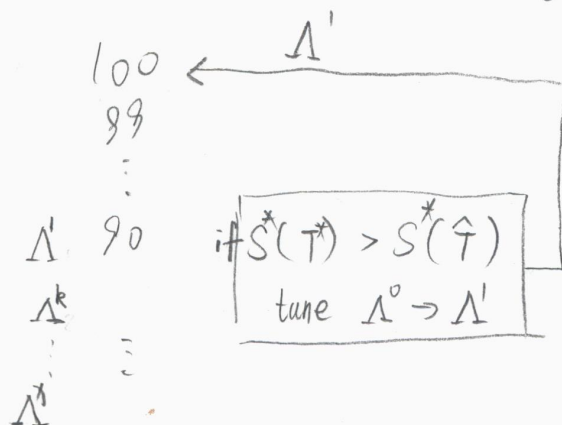 Λ'
100
99
⋮
Λ' 90 if S*(T*) > S*(T̂)
Λᵏ tune Λ⁰ → Λ'
⋮ ⋮
Λ*